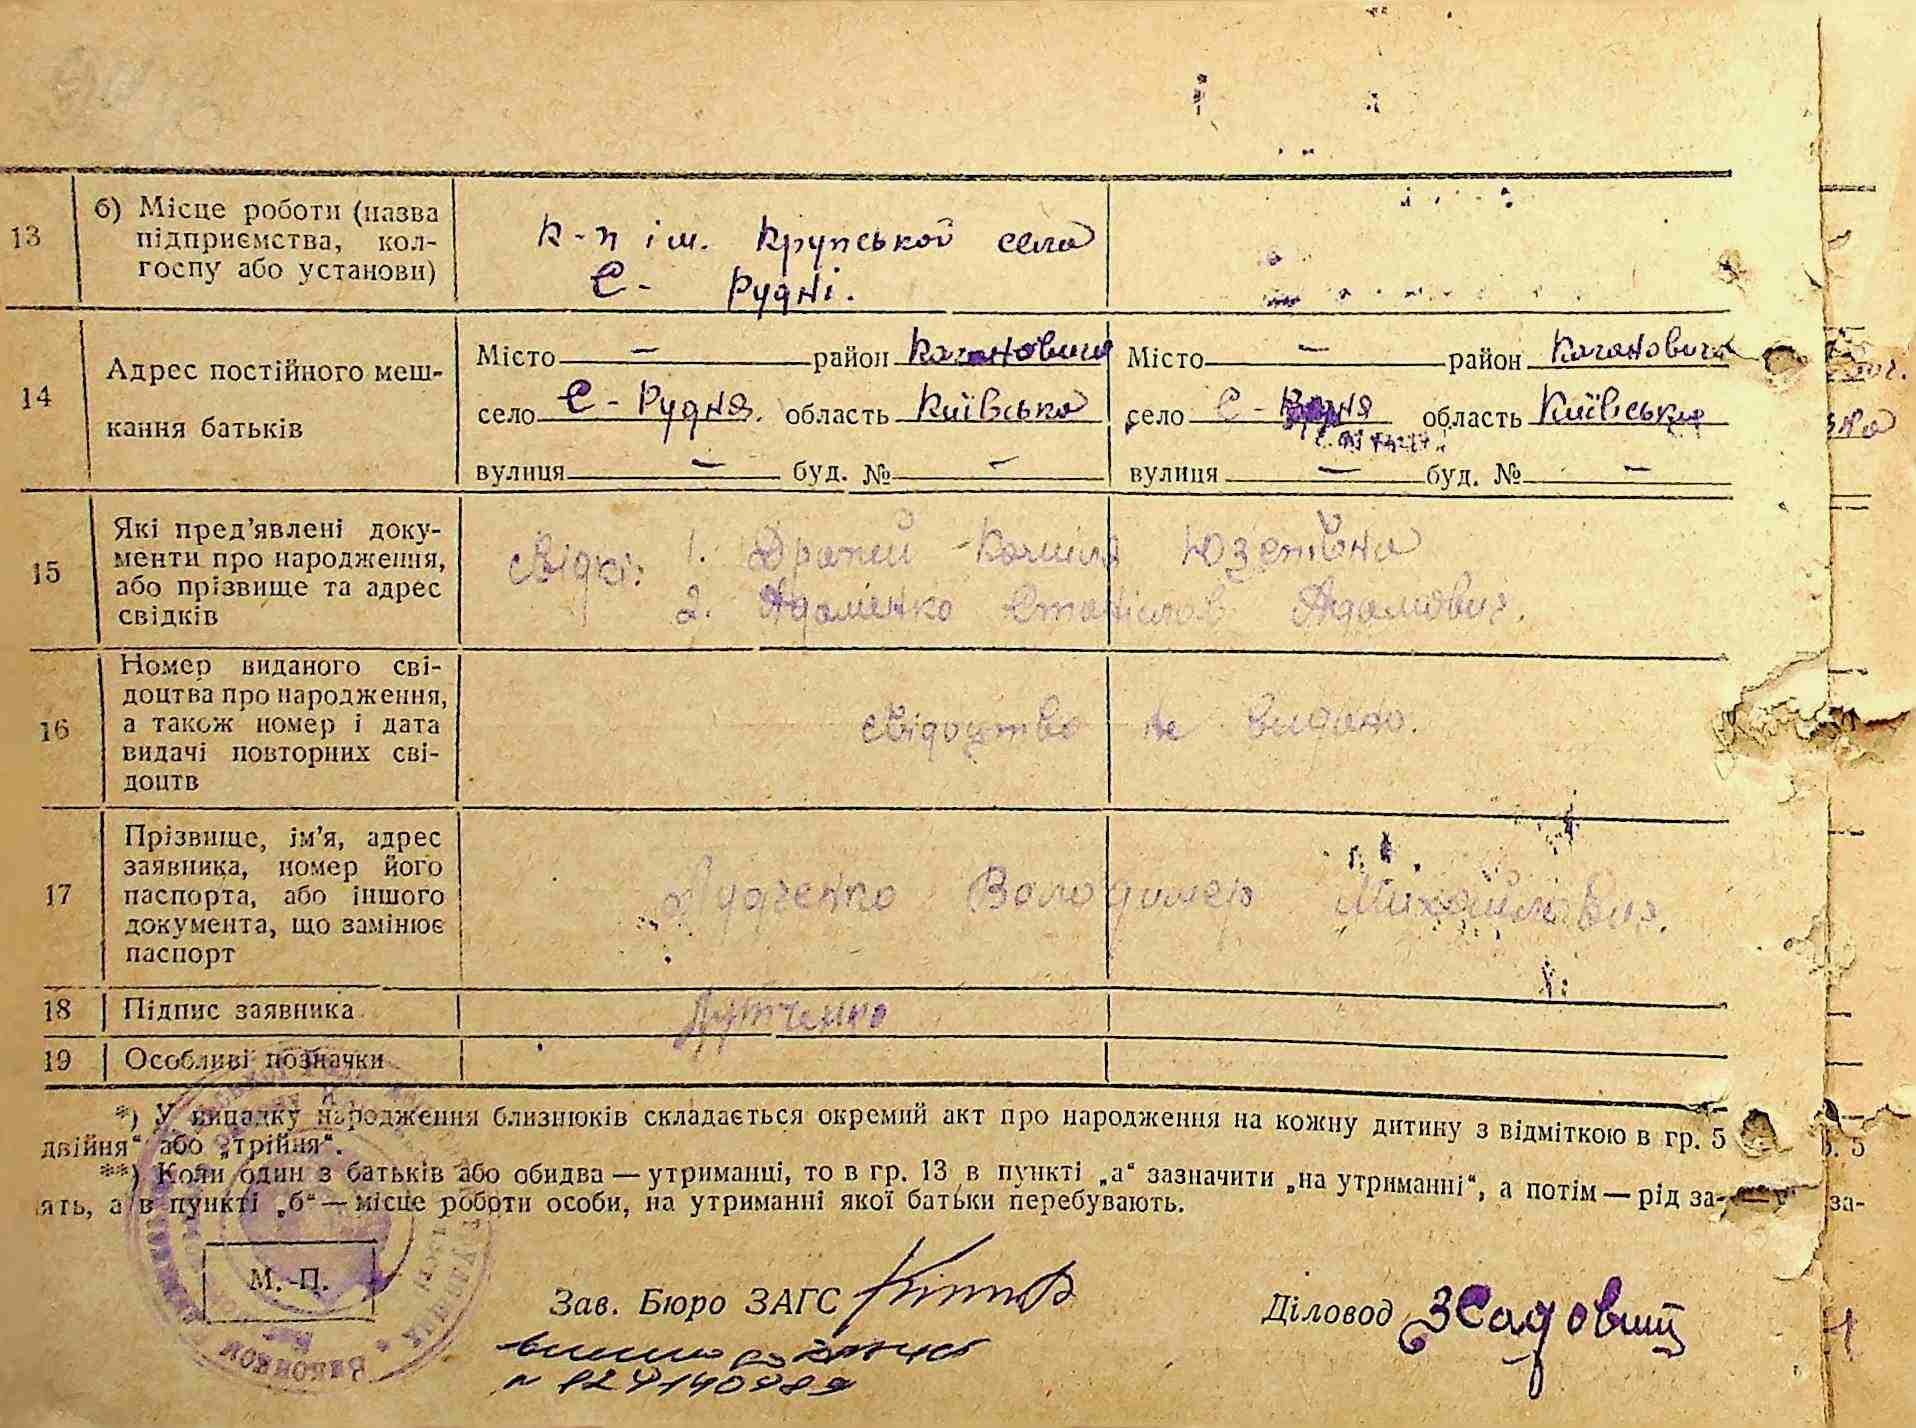 13
б) Місце роботи (назва
підприємства, кол-
госпу або установи)
к-п ім. Крупської села
Є- Рудні.
14
Адрес постійного меш-
кання батьків
Місто — район Каганович
село Є-Рудня. область Київська
вулиця — буд. № —
Місто — район Каганович
село Є- область Київська
вулиця — буд. № —
15
Які пред'явлені доку-
менти про народження,
або прізвище та адрес
свідків
свідкі: 1. Драпей Каміля Юзефівна
2. Адаменко Станіслав Адамович.
16
Номер виданого сві-
доцтва про народження,
а також номер і дата
видачі повторних сві-
доцтв
свідоцтво не видано.
17
Прізвище, ім'я, адрес
заявника, номер його
паспорта, або іншого
документа, що замінює
паспорт
Володимер Михайлович.
18
Підпис заявника
19
Особливі позначки
*) У випадку народження близнюків складається окремий акт про народження на кожну дитину з відміткою в гр. 5
двійня“ або „трійня“.
**) Коли один з батьків або обидва — утриманці, то в гр. 13 в пункті „а“ зазначити „на утриманні“, а потім — рід за-
ять, а в пункті „б“ — місце роботи особи, на утриманні якої батьки перебувають.
М. П.
Зав. Бюро ЗАГС
Діловод ЗСадовий